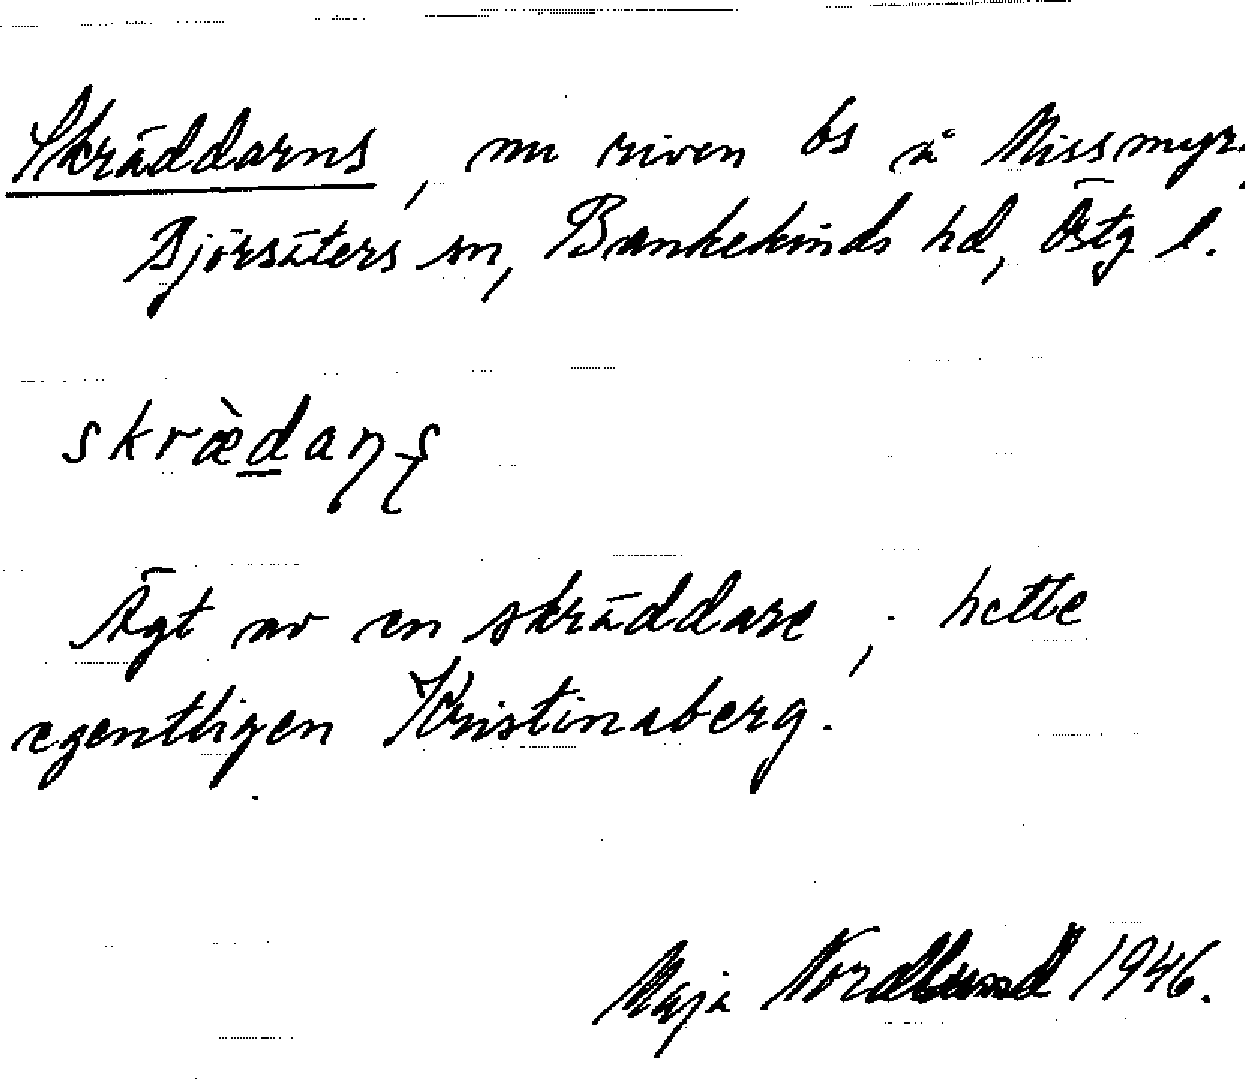 Skräddarns, nu riven bs å Missmyr,
Björsäters sn, Bankekinds hd, Östg l.
skræ̀da
Ägt av en skräddare, hette
egentligen Kristinaberg.
Maja Nordlund 1946.